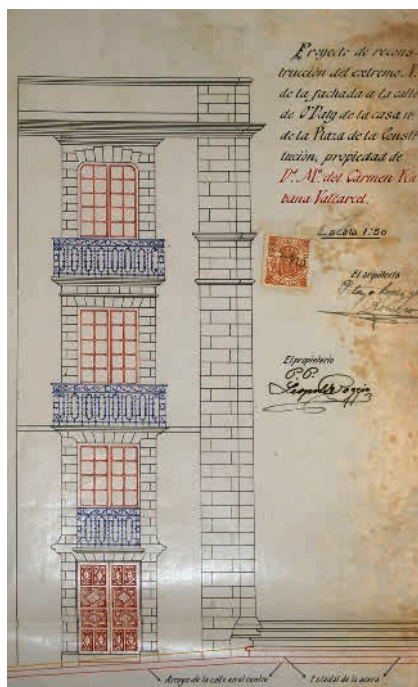 Proyecto de recons-
trucción del extremo N.
de la fachada a la calle
de Puig de la casa nº
de la Plaza de la Consti-
tución, propiedad de
Dª Mª del Carmen
bana Valcarcel.
Escala 1:50
El arquitecto
El propietario
P. P.
Arroyo de la calle en el centro
Estadal de la acera